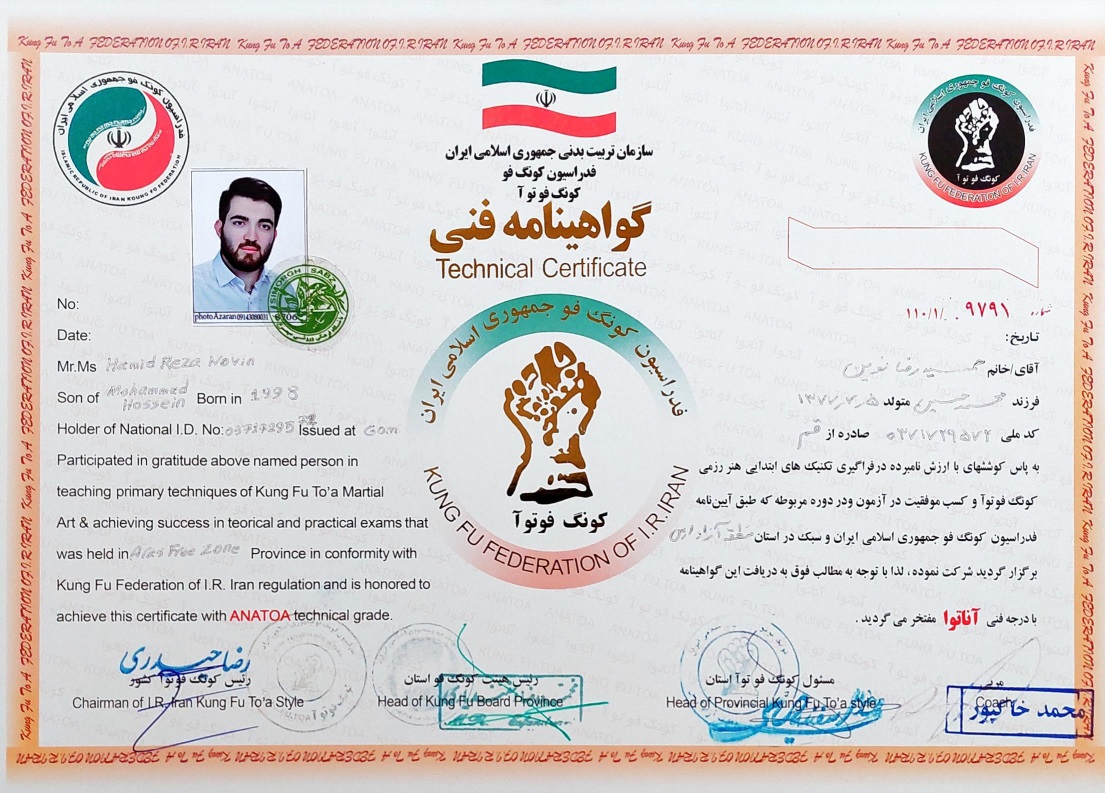 Kung Fu To A FEDERATION OF I.R.IRAN Kung Fu To A FEDERATION OF I.R.IRAN Kung Fu To A FEDERATION OF I.R.IRAN Kung Fu To A FEDERATION OF I.R.IRAN Kung Fu To A FEDERATION OF I.R.IRAN
فدراسیون کونگ فو جمهوری اسلامی ایران
ISLAMIC REPUBLIC OF IRAN KOUNG FU FEDERATION
سازمان تربیت بدنی جمهوری اسلامی ایران
فدراسیون کونگ فو
کونگ فو توآ
گواهینامه فنی
Technical Certificate
فدراسیون کونگ فو جمهوری اسلامی ایران
کونگ فو توآ
KUNG FU FEDERATION OF I.R.IRAN
photo Azaran 09143080031
SABZ
فدراسیون کونگ فو جمهوری اسلامی ایران
کونگ فوتوآ
KUNG FU FEDERATION OF I.R.IRAN
No:
Date:
Mr.Ms Hamid Reza Novin
Son of Mohammed Hossein Born in 1998
Holder of National I.D. No: Issued at Gom
Participated in gratitude above named person in
teaching primary techniques of Kung Fu To'a Martial
Art & achieving success in teorical and practical exams that
was held in Aras Free Zone Province in conformity with
Kung Fu Federation of I.R. Iran regulation and is honored to
achieve this certificate with ANATOA technical grade.
۱۱۰/۱/۰۹۷۹۱
تاریخ:
آقای/خانم حمید رضا نوین
فرزند محمد حسین متولد ۱۳۷۷/۷/۵
کد ملی ۰۳۷۱۷۲۹۵۷۲ صادره از قم
به پاس کوششهای با ارزش نامبرده درفراگیری تکنیک های ابتدایی هنر رزمی
کونگ فوتوآ و کسب موفقیت در آزمون ودر دوره مربوطه که طبق آیین‌نامه
فدراسیون کونگ فو جمهوری اسلامی ایران و سبک در استان منطقه آزاد ارس
برگزار گردید شرکت نموده ، لذا با توجه به مطالب فوق به دریافت این گواهینامه
با درجه فنی آناتوا مفتخر می گردید .
رضا حیدری
رئیس کونگ فوتوآ کشور
Chairman of I.R. Iran Kung Fu To'a Style
رئیس هیئت کونگ فو استان
Head of Kung Fu Board Province
مسئول کونگ فو توآ استان
Head of Provincial Kung Fu To'a style
مربی
Coach
محمد خاکپور